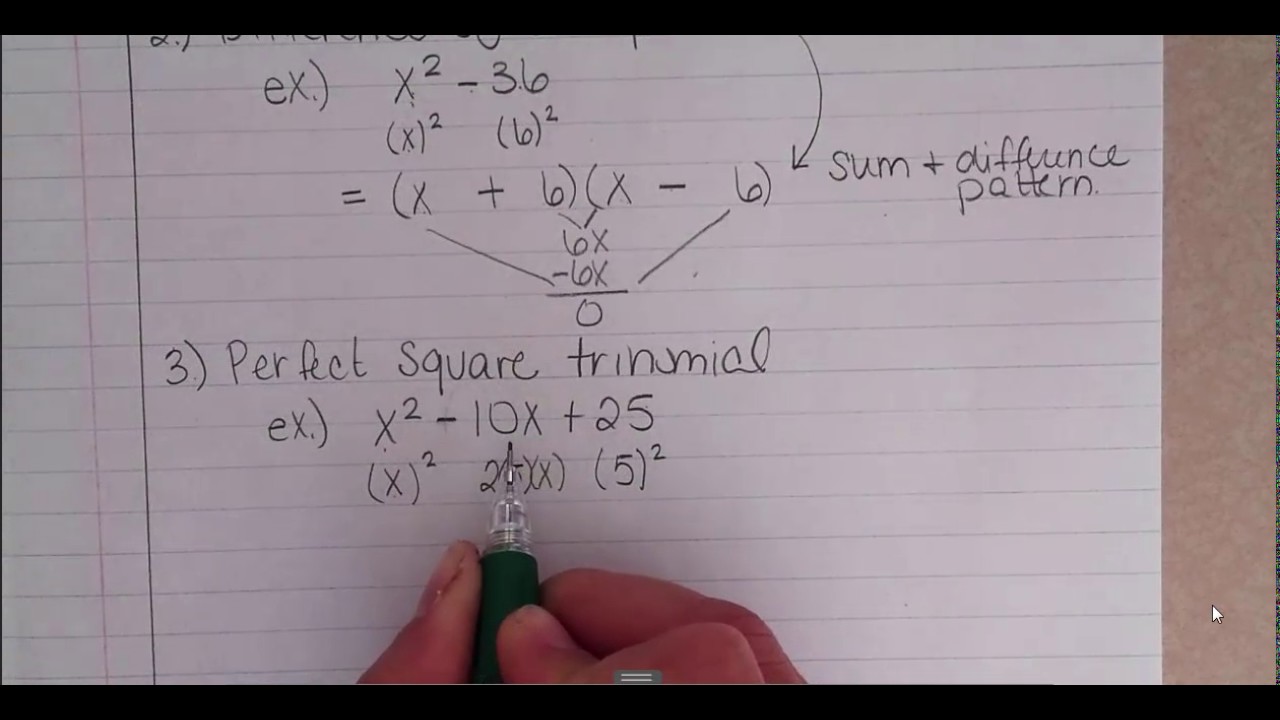 ex.) x² - 36
(x)² (6)²
= (x + 6)(x - 6)
sum + difference
pattern.
6x
-6x
0
3.) Perfect Square trinmial
ex.) x² - 10x + 25
(x)² (x) (5)²